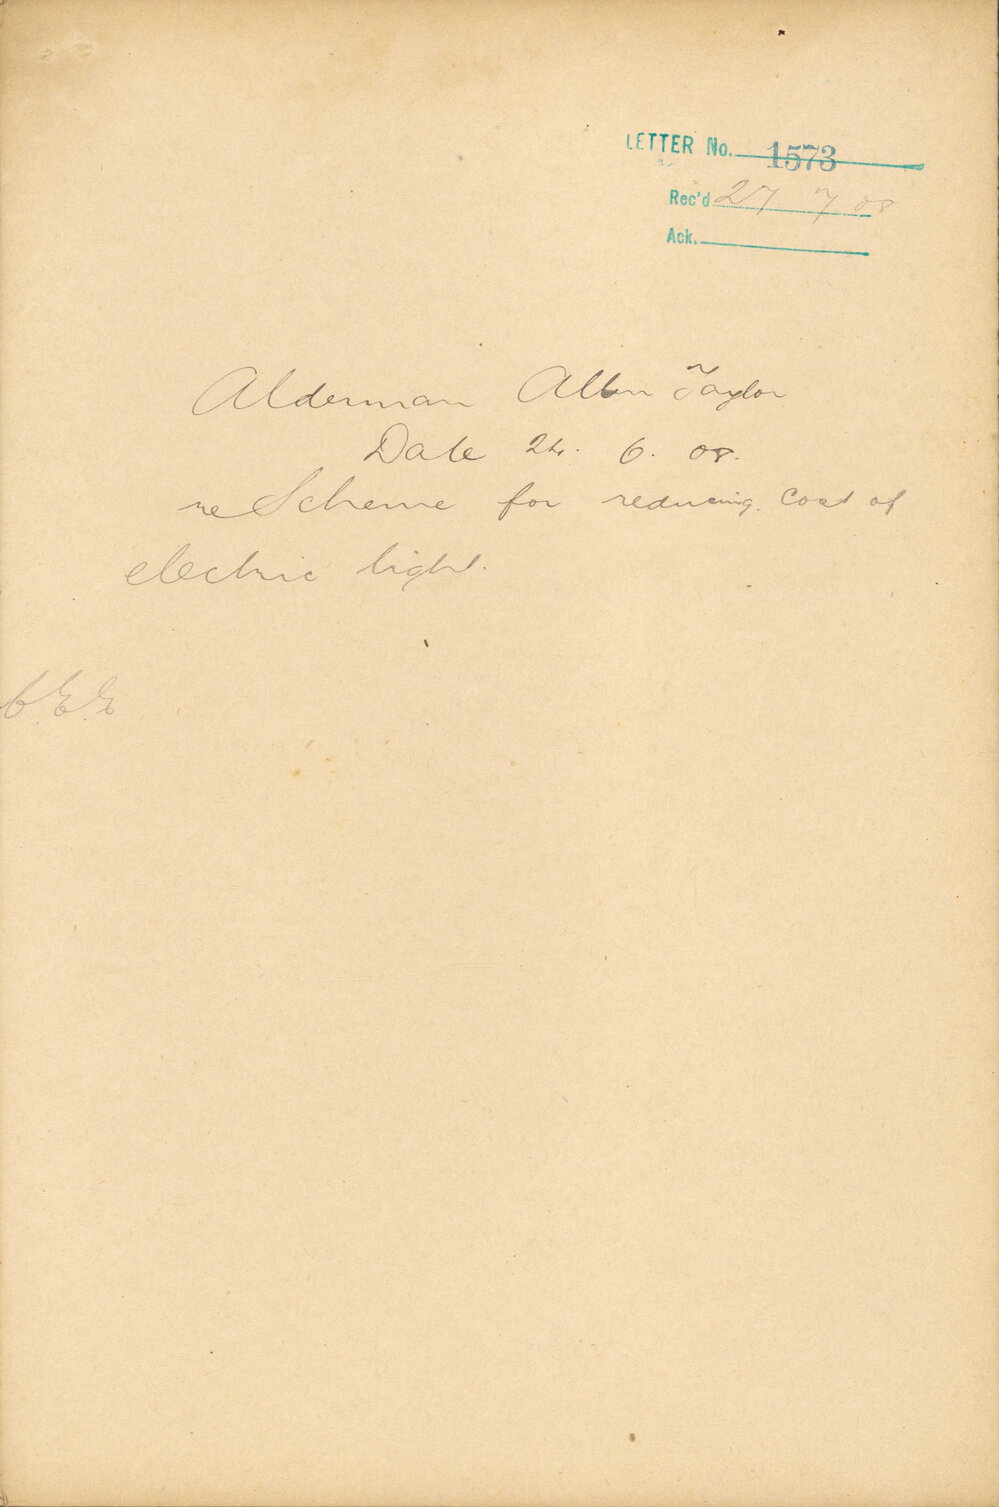 LETTER No. 1573
Rec'd 27. 7 08
Ack.
Alderman Allen Taylor
Date 24. 6. 08.
re Scheme for reducing cost of
electric light.